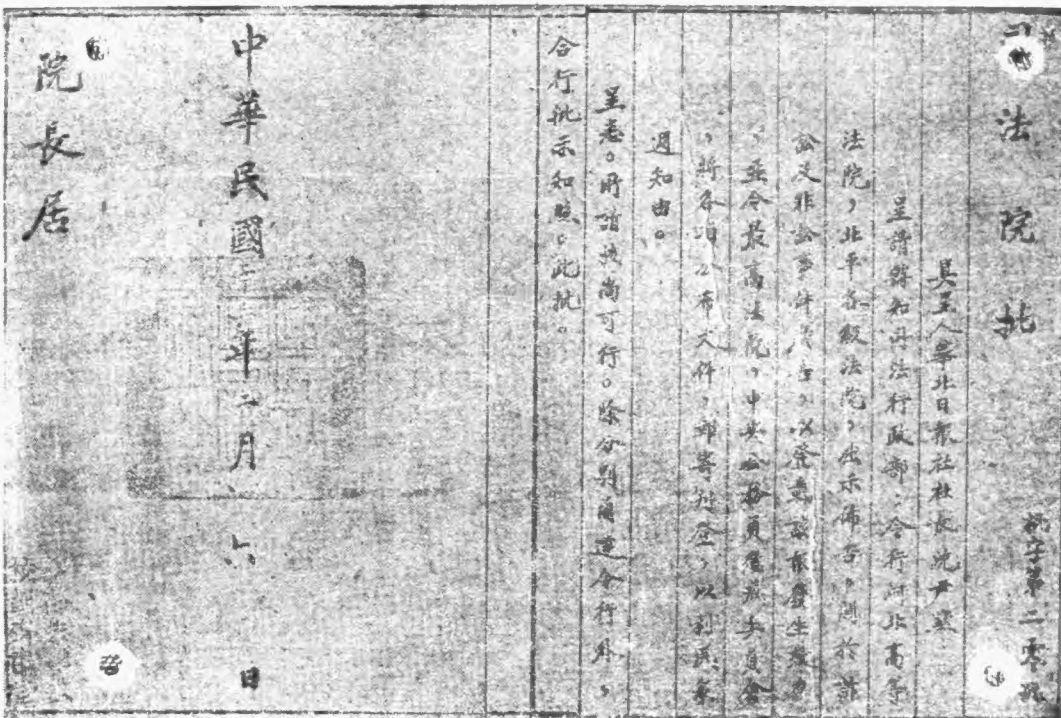 司法院批
批字第二零號
具呈人華北日報社社長沈尹默
呈請轉知司法行政部,令行河北高等
法院,北平各級法院,出示佈告,關於訴
訟及非訟事件,以登載該報發生效力
,並令最高法院,中央公務員懲戒委員會
,將各項公布文件,郵寄刊登,以利
週知由。
呈悉。所請尚可行。除分別函達令行外,
合行批示知照。此批。
中華民國二十年二月六日
院長居